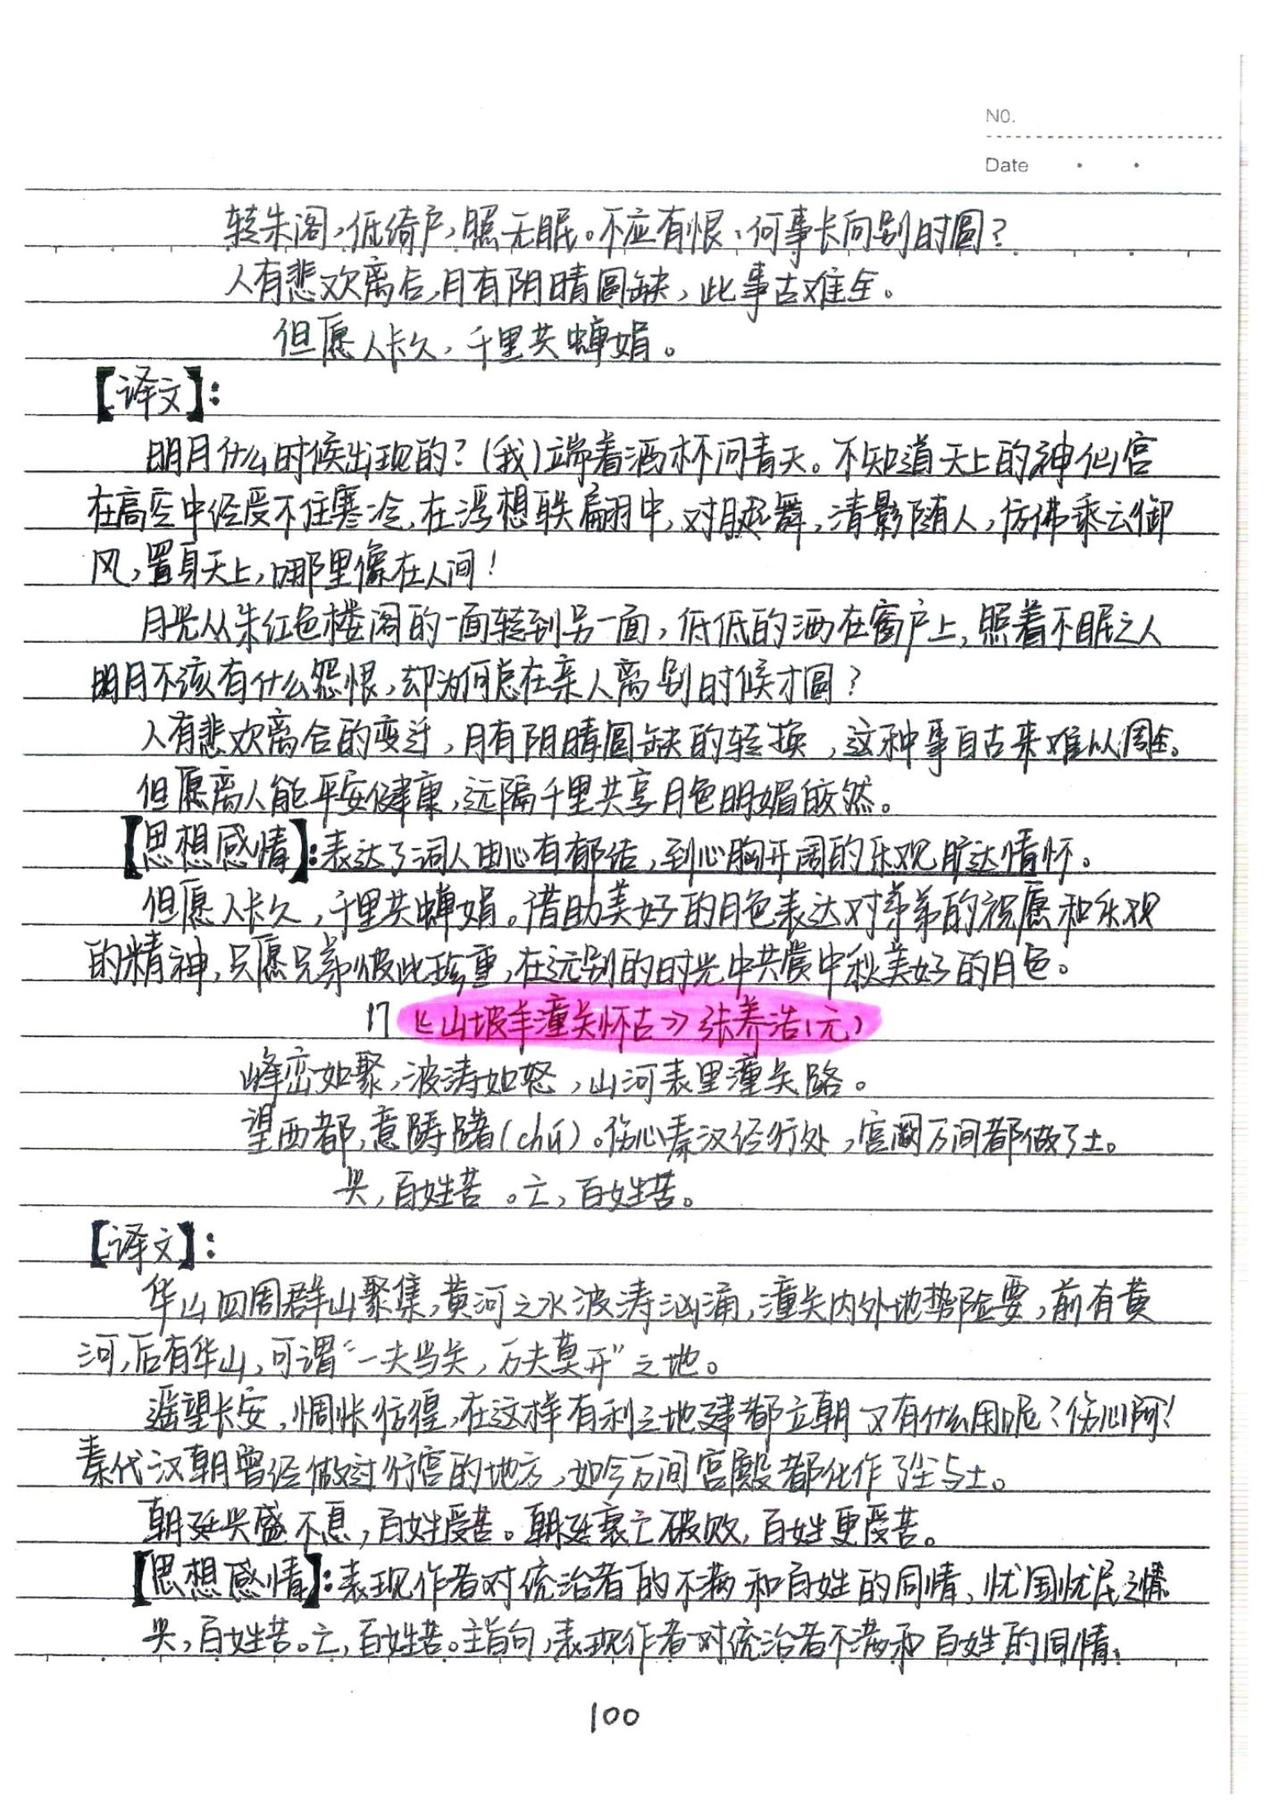 NO.
Date
转朱阁,低绮户,照无眠。不应有恨、何事长向别时圆?
人有悲欢离合,月有阴晴圆缺,此事古难全。
但愿人长久,千里共婵娟。
【译文】:
明月什么时候出现的?(我)端着酒杯问青天。不知道天上的神仙宫
在高空中经受不住寒冷,在浮想联翩中,对月起舞,清影随人,仿佛乘云御
风,置身天上,哪里像在人间!
月光从朱红色楼阁的一面转到另一面,低低的洒在窗户上,照着不眠之人
明月不该有什么怨恨,却为何总在亲人离别时候才圆?
人有悲欢离合的变迁,月有阴晴圆缺的转换,这种事自古来难以周全。
但愿离人能平安健康,远隔千里共享月色明媚皎然。
【思想感情】:表达了词人由心有郁结,到心胸开阔的乐观旷达情怀。
但愿人长久,千里共婵娟。借助美好的月色表达对弟弟的祝愿和乐观
的精神,只愿兄弟彼此珍重,在远别的时光中共赏中秋美好的月色。
17《山坡羊潼关怀古》张养浩(元)
峰峦如聚,波涛如怒,山河表里潼关路。
望西都,意踌躇(chú)。伤心秦汉经行处,宫阙万间都做了土。
兴,百姓苦。亡,百姓苦。
【译文】:
华山四周群山聚集,黄河之水波涛汹涌,潼关内外地势险要,前有黄
河,后有华山,可谓“一夫当关,万夫莫开”之地。
遥望长安,惆怅彷徨,在这样有利之地建都立朝又有什么用呢?伤心啊!
秦代汉朝曾经做过行宫的地方,如今万间宫殿都化作了尘与土。
朝廷兴盛不息,百姓受苦。朝廷衰亡破败,百姓更受苦。
【思想感情】:表现作者对统治者的不满和百姓的同情、忧国忧民之情
兴,百姓苦。亡,百姓苦。主旨句,表现作者对统治者不满和百姓的同情。
100